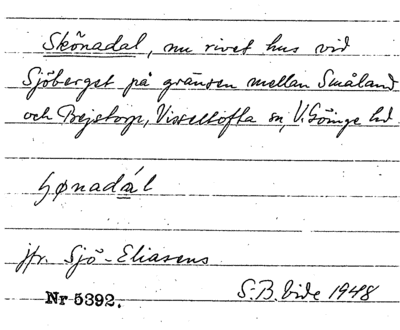 Skönadal, nu rivet hus vid
Sjöberget på gränsen mellan Småland
och Bejstorp, Visseltofta sn, V. Göinge hd.
ʃønadál
jfr. Sjö-Eliasens
Nr 5392.
S.B. Vide 1948